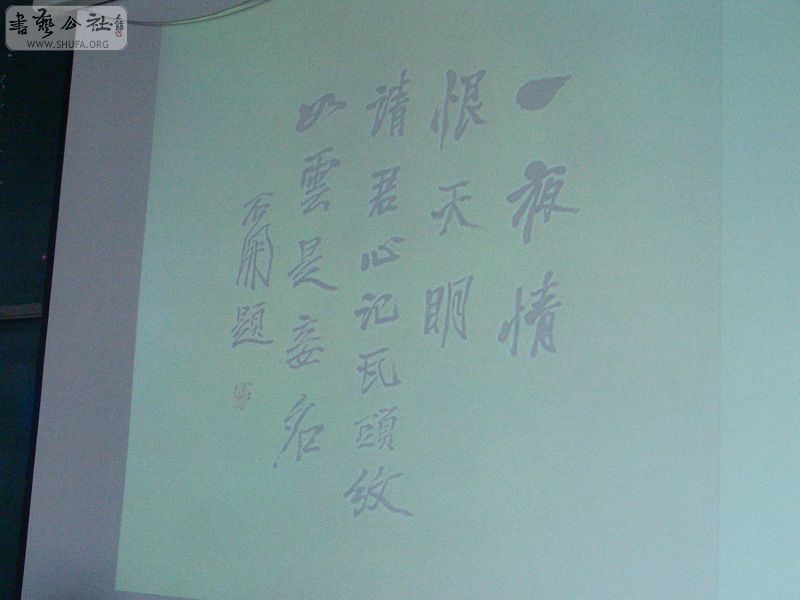 書藝公社
WWW.SHUFA.ORG
一夜情
恨天明
请君心记瓦頭紋
如雲是妾名
石開題